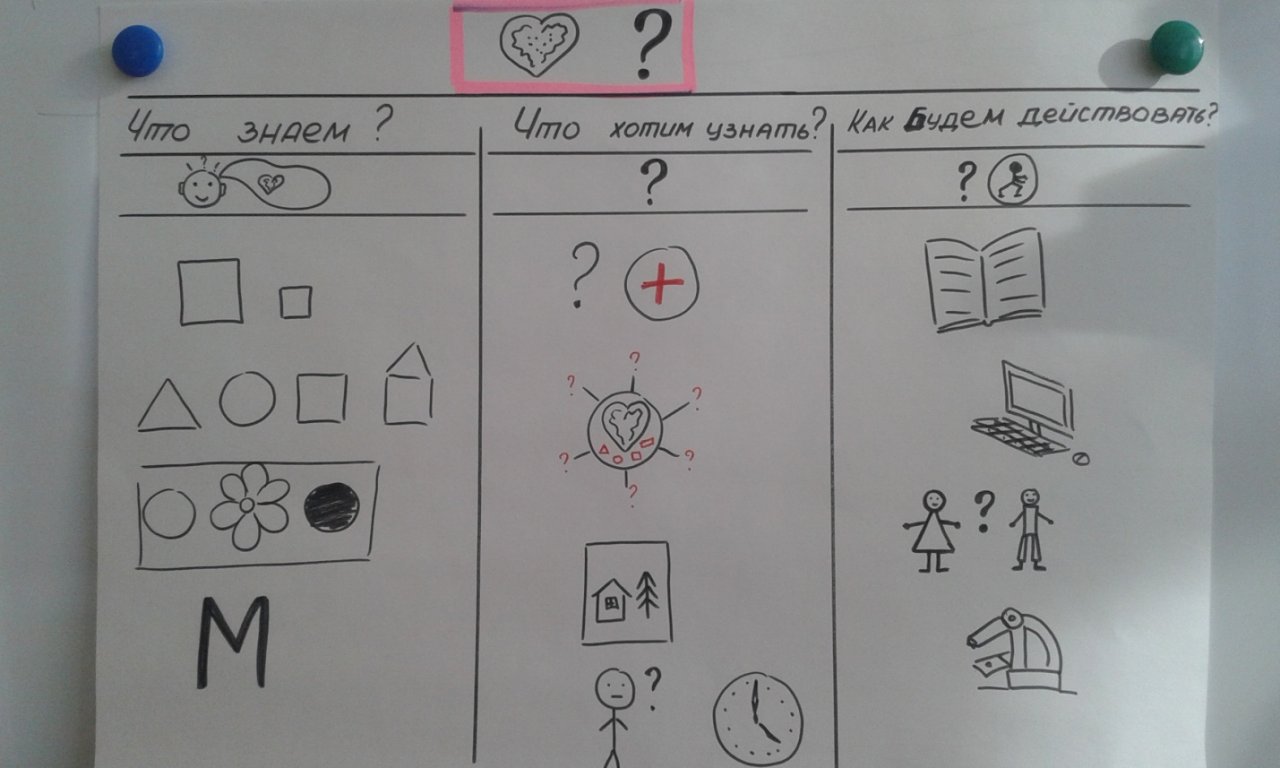 ?
Что знаем?
Что хотим узнать?
Как Будем действовать?
?
?
?
М
?
?